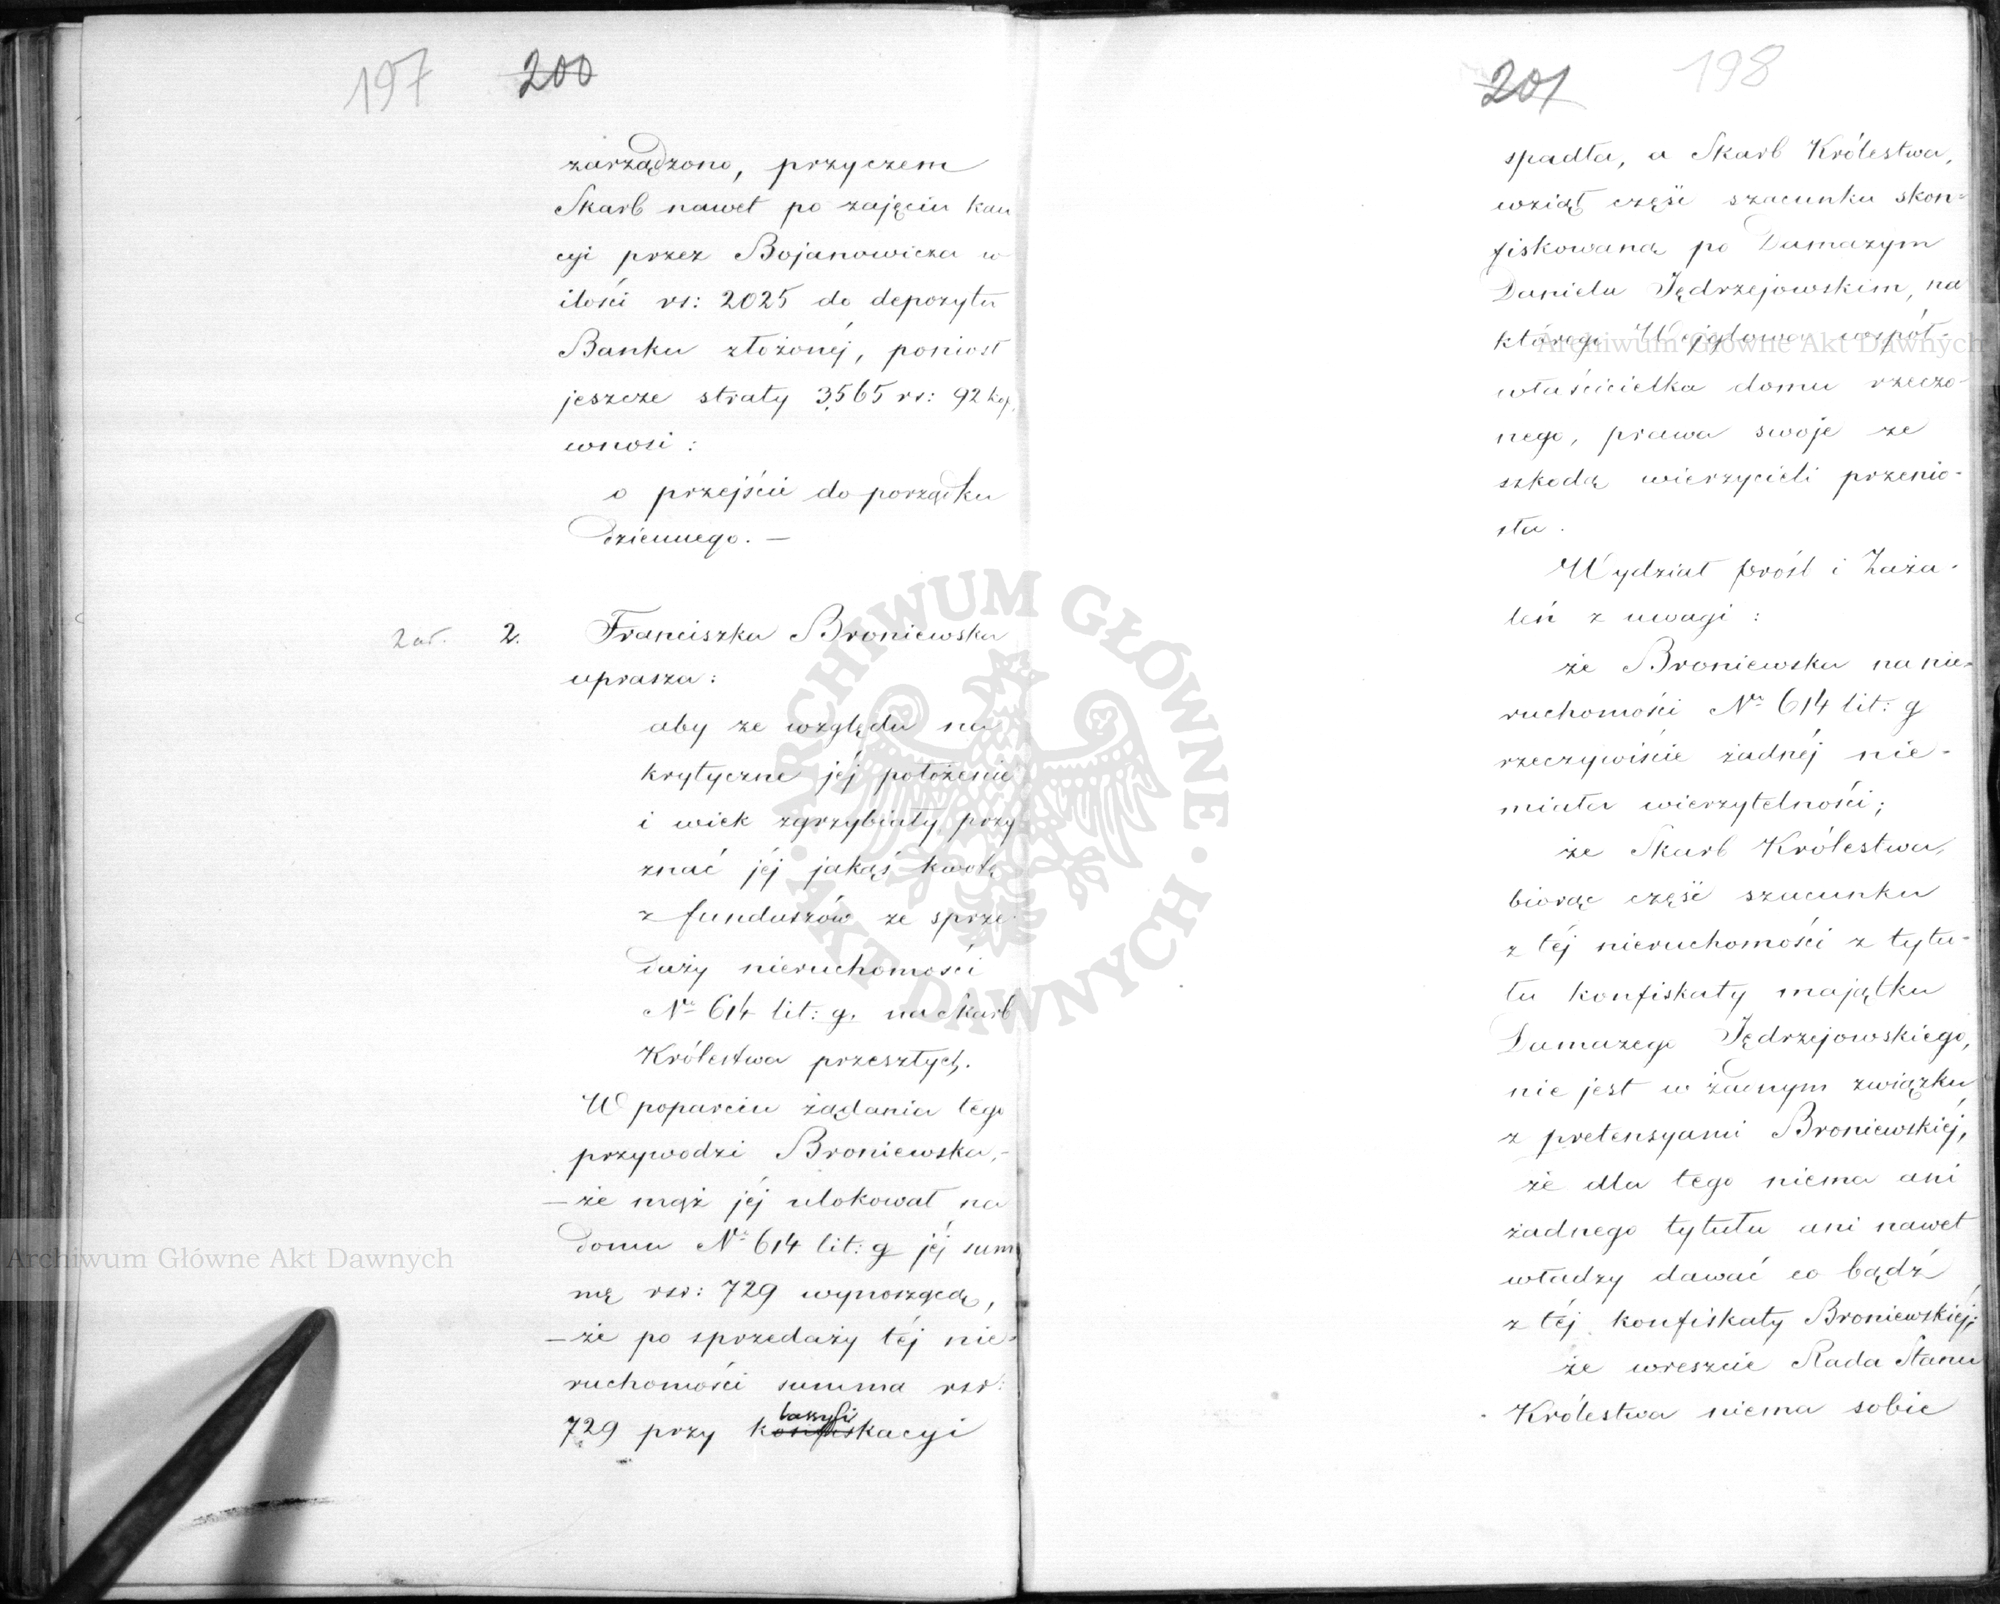 197 200
zarządzono, przyczem
Skarb nawet po zajęciu kau
cyi przez Bojanowicza w
ilości rs: 2025 do depozytu
Banku złożonéj, poniosł
jeszcze straty 3565 rs: 92 kop.
wnosi:
o przejście do porządku
dziennego. —
2. Franciszka Broniewska
uprasza:
aby ze względu na
krytyczne jéj położenie
i wiek zgrzybiały przy
znać jéj jakąś kwotę
z funduszów ze sprze-
daży nieruchomości
Nr 614 lit: g. na Skarb
Królestwa przeszłych.
W poparciu żądania tego
przywodzi Broniewska, -
— że mąż jéj ulokował na
domu Nr 614 lit: g jéj sum
mę rsr: 729 wynoszącą,
— że po sprzedaży téj nie-
ruchomości summa rsr:
729 przy klassyfikacyi
201 198
spadła, a Skarb Królestwa,
wziął część szacunku skon-
fiskowaną po Damazym
Danielu Jędrzejowskim, na
którego Wójgłowa współ-
właścicielka domu rzeczo-
nego, prawa swoje ze
szkodą wierzycieli przenio-
sła.
Wydział próśb i Zaża-
leń z uwagi:
że Broniewska na nie-
ruchomości Nr 614 lit: g
rzeczywiście żadnéj nie-
miała wierzytelności;
że Skarb Królestwa,
biorąc część szacunku
z téj nieruchomości z tytu-
łu konfiskaty majątku
Damazego Jędrzejowskiego,
nie jest w żadnym związku
z pretensyami Broniewskiéj,
że dla tego niema ani
żadnego tytułu ani nawet
władzy dawać co bądź
z téj konfiskaty Broniewskiéj;
że wreszcie Rada Stanu
Królestwa niema sobie
Archiwum Główne Akt Dawnych
Archiwum Główne Akt Dawnych
ARCHIWUM GŁÓWNE · AKT DAWNYCH ·